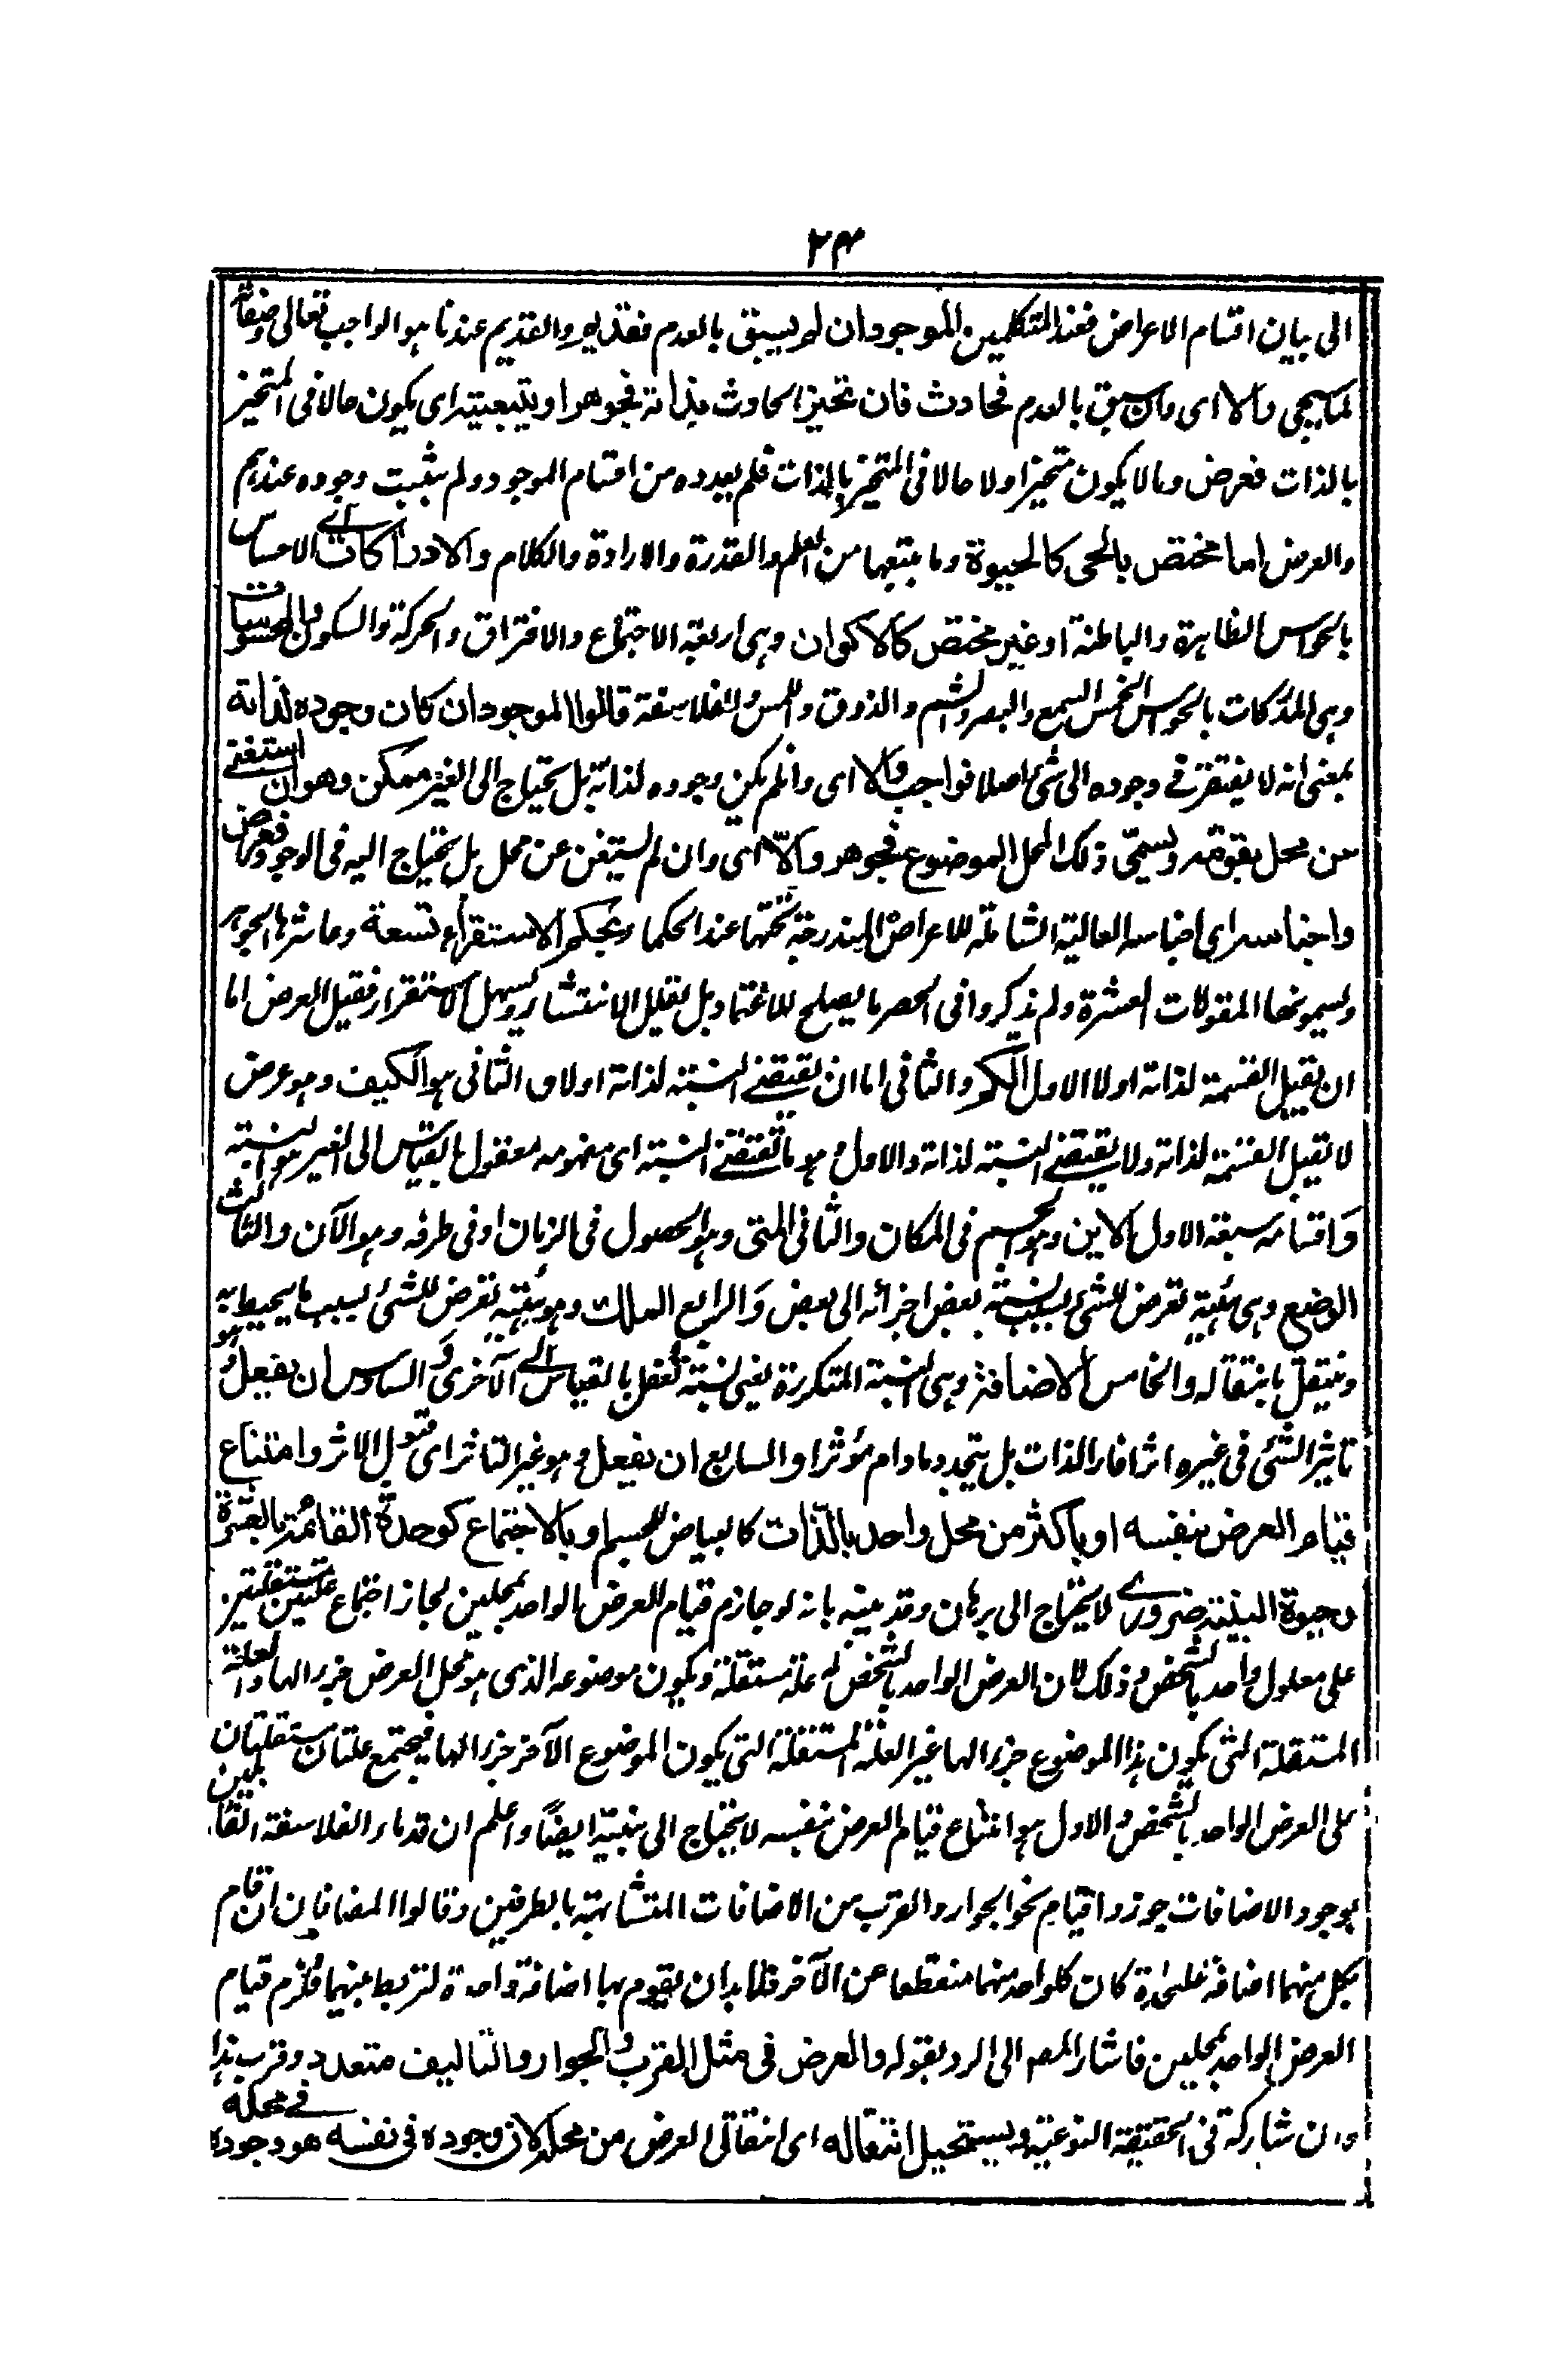 ٢٤
الى بيان اقسام الاعراض فعند المتكلمين الموجود ان لم يسبق بالعدم فقديم والقديم عندنا هو الواجب تعالى وصفاته
لما يجئ والا اى وان سبق بالعدم فحادث فان تحيز الحادث بذاته فجوهر او بتبعيته اى يكون حالا فى المتحيز
بالذات فعرض وما لا يكون متحيزا ولا حالا فى المتحيز بالذات فلم يعدوه من اقسام الموجود ولم يثبت وجوده عندهم
والعرض اما مختص بالحى كالحيوة وما يتبعها من العلم والقدرة والارادة والكلام والادراكات اى الاحساس
بالحواس الظاهرة والباطنة او غير مختص كالاكوان وهى اربعة الاجتماع والافتراق والحركة والسكون والمحسوسات
وهى المدركات بالحواس الخمس السمع والبصر والشم والذوق واللمس والفلاسفة قالوا الموجود ان كان وجوده لذاته
بمعنى انه لا يفتقر فى وجوده الى شئ اصلا فواجب والا اى وان لم يكن وجوده لذاته بل يحتاج الى الغير ممكن وهو ان استغنى
عن محل يقومه ويسمّى ذلك المحل الموضوع فجوهر والّا اى وان لم يستغن عن محل بل يحتاج اليه فى الوجود فعرض
واجناسه اى اجناسه العالية الشاملة للاعراض المندرجة تحتها عند الحكماء بحكم الاستقراء تسعة وعاشرها الجوهر
ويسمونها المقولات العشرة ولم يذكروا فى الحصر ما يصلح للاعتماد بل تقليل الانتشار ويسهل الاستقرار فقيل العرض اما
ان يقبل القسمة لذاته اولا الاول الكم والثانى اما ان يقتضى النسبة لذاته اولا والثانى هو الكيف وهو عرض
لا يقبل القسمة لذاته ولا يقتضى النسبة لذاته والاول وهو ما تقتضى النسبة اى مفهومه معقول بالقياس الى الغير هو النسبة
وَاقسامه سبعة الاول الاين وهو الجسم فى المكان والثانى المتى وهو الحصول فى الزمان او فى طرفه وهو الآن والثالث
الوضع وهى هيئة تعرض للشئ بسبب نسبة بعض اجزائه الى بعض وَالرابع الملك وهو هيئة تعرض للشئ بسبب ما يحيط به
وينتقل بانتقاله والخامس الاضافة وهى النسبة المتكررة يعنى نسبة تعقل بالقياس الى الآخرى وَالسادس ان يفعل وهو
تاثير الشئ فى غيره اثرا قار الذات بل يتجدد مادام مؤثرا والسابع ان ينفعل وهو غير التاثر اى قبول الاثر وامتناع
قيام العرض بنفسه او باكثر من محل واحد بالذّات كالبياض للجسم او بالاجتماع كوحدة القائمة بالعشرة
وحيوة البنية ضرورى لا يحتاج الى برهان وقد ينبه بانه لو جاز قيام العرض الواحد بمحلين لجاز اجتماع علتين مستقلتين
على معلول واحد بالشخص وذلك لان العرض الواحد بالشخص له علة مستقلة ويكون موضوعه الذى هو محل العرض جزء الها والعلة
المستقلة التى يكون هذا الموضوع جزء الها غير العلة المستقلة التى يكون الموضوع الآخر جزء الها فيجتمع علتان مستقلتان
على العرض الواحد بالشخص والاول هو امتناع قيام العرض بنفسه لا يحتاج الى بينة ايضًا واعلم ان قدماء الفلاسفة القائلين
بوجود الاضافات جوزوا قيام نحو الجوار والقرب من الاضافات المتشابهة بالطرفين وقالوا المضافان ان قام
بكل منهما اضافة علىٰحدة كان كلواحد منهما منقطعا عن الآخر فلا بد ان يقوم بها اضافة واحدة لتربط بينهما فلزم قيام
العرض الواحد بمحلين فاشار المصـ الى الرد بقوله والعرض فى مثل القرب والجوار والتاليف متعدد وقرب هذا
وان شاركه فى الحقيقة النوعية ويستحيل انتقاله اى انتقال العرض من محله لان وجوده فى نفسه هو وجوده فى محله